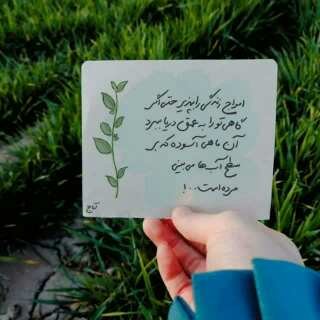 امواج زندگی را بپذیر حتی اگر
گاهی تو را به عمق دریا ببرد
آن ماهی آسوده که بر
سطح آب ها می بینی
مرده است...!